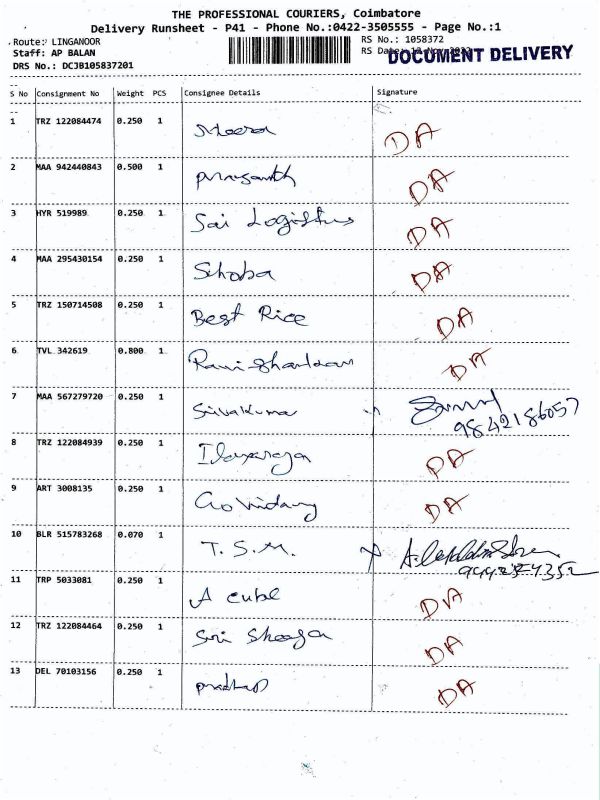 THE PROFESSIONAL COURIERS, Coimbatore
Delivery Runsheet - P41 - Phone No.:0422-3505555 - Page No.:1
Route: LINGANOOR RS No.: 1058372
Staff: AP BALAN RS Date: DOCUMENT DELIVERY
DRS No.: DCJB105837201
S No Consignment No Weight PCS Consignee Details Signature
1 TRZ 122084474 0.250 1 Meera DA
2 MAA 942440843 0.500 1 prasanth DA
3 HYR 519989 0.250 1 Sai Logistics DA
4 MAA 295430154 0.250 1 Shoba DA
5 TRZ 150714508 0.250 1 Best Rice DA
6 TVL 342619 0.800 1 Ravi Shankar DA
7 MAA 567279720 0.250 1 Sivakumar 9842186057
8 TRZ 122084939 0.250 1 Ilayaraja DA
9 ART 3008135 0.250 1 DA
10 BLR 515783268 0.070 1 T.S.M.
11 TRP 5033081 0.250 1 A cube DA
12 TRZ 122084464 0.250 1 Sri DA
13 DEL 70103156 0.250 1 pradhap DA